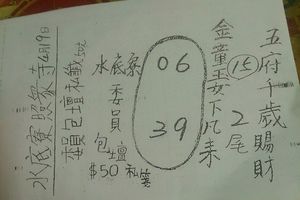 五府千歲賜財
⑮ 2尾
金童玉女下凡来
06
39
水底寮委員包壇
$50 私簽
包壇私籤
水底寮照寮寺4月19日